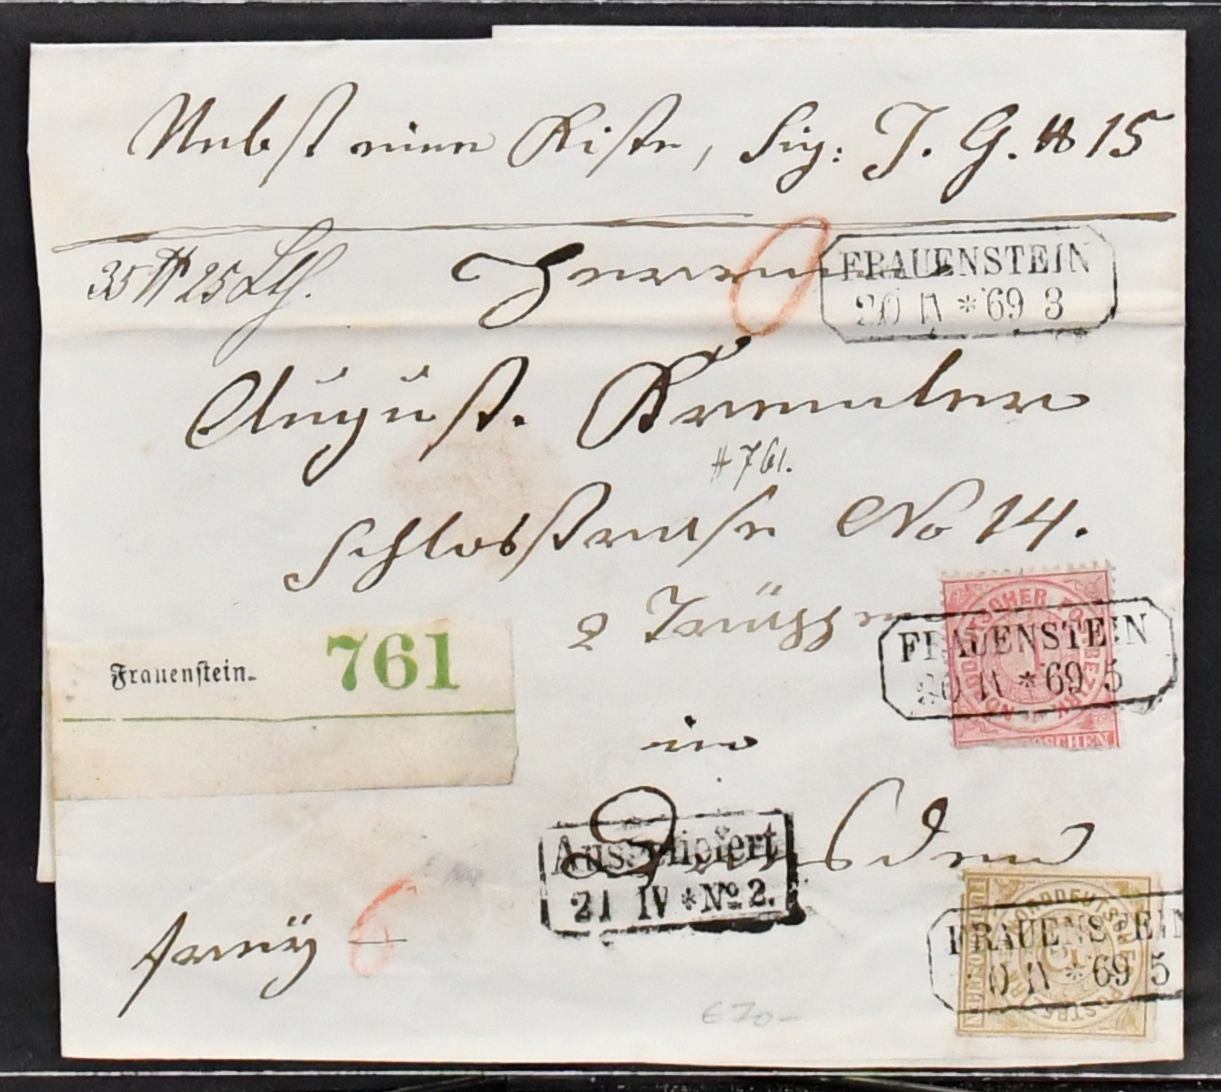 Nebst einer Kiste, Sig: J. G. # 15
35 ℔ 25 Lth.
Herrn
FRAUENSTEIN
20 IV * 69 3
August Kremler
# 761.
Schlosstrasse No 14.
2 Treppen
FRAUENSTEIN
20 IV * 69 5
NORDDEUTSCHER POSTBEZIRK
GROSCHEN
Frauenstein. 761
in
Dresden
Ausgeliefert
21 IV * No 2.
NORDDEUTSCHER POSTBEZIRK
FRAUENSTEIN
20 IV * 69 5
franco
6
€70-